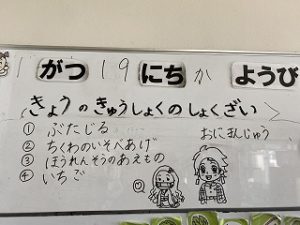 1 がつ 19 にち か ようび
きょうのきゅうしょくのしょくざい
① ぶたじる
② ちくわのいそべあげ
③ ほうれんそうのあえもの
④ いちご
おにまんじゅう